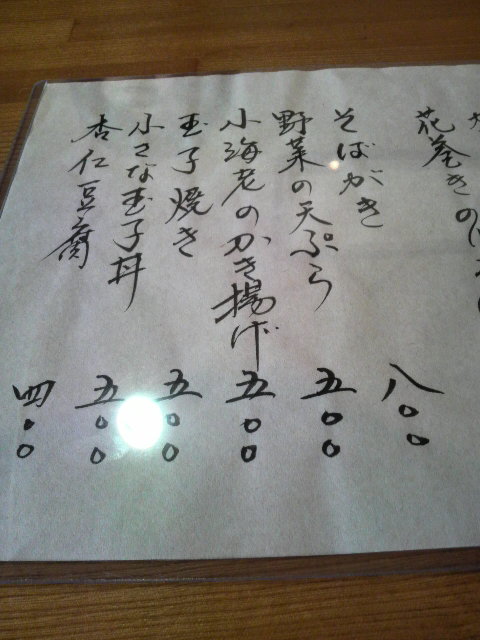 花巻きの
そばがき 八〇〇
野菜の天ぷら 五〇〇
小海老のかき揚げ 五〇〇
玉子焼き 五〇〇
小さな玉子丼 五〇〇
杏仁豆腐 四〇〇